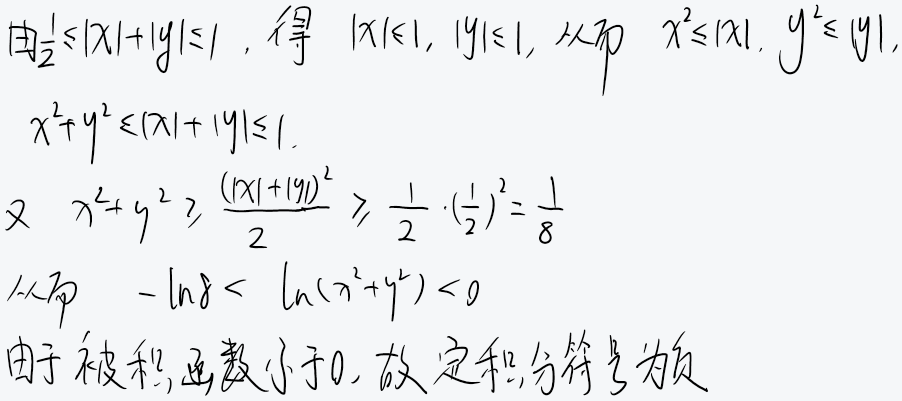 由 1/2 ≤ |x|+|y| ≤ 1 , 得 |x| ≤ 1, |y| ≤ 1, 从而 x² ≤ |x|, y² ≤ |y|,
x²+y² ≤ |x|+|y| ≤ 1.
又 x²+y² ≥ (|x|+|y|)²/2 ≥ 1/2 · (1/2)² = 1/8
从而 -ln8 < ln(x²+y²) < 0
由于被积函数小于0, 故定积分符号为负